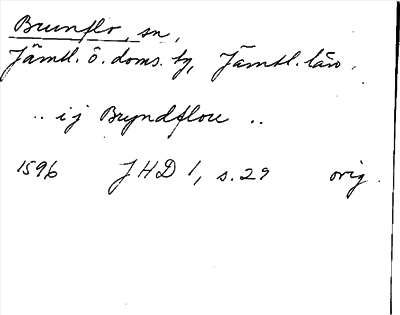 Brunflo, sn,
Jämtl. ö. doms. tg, Jämtl. län.
.. ij Bryndfloue ..
1596 JHD 1, s. 29 orig.